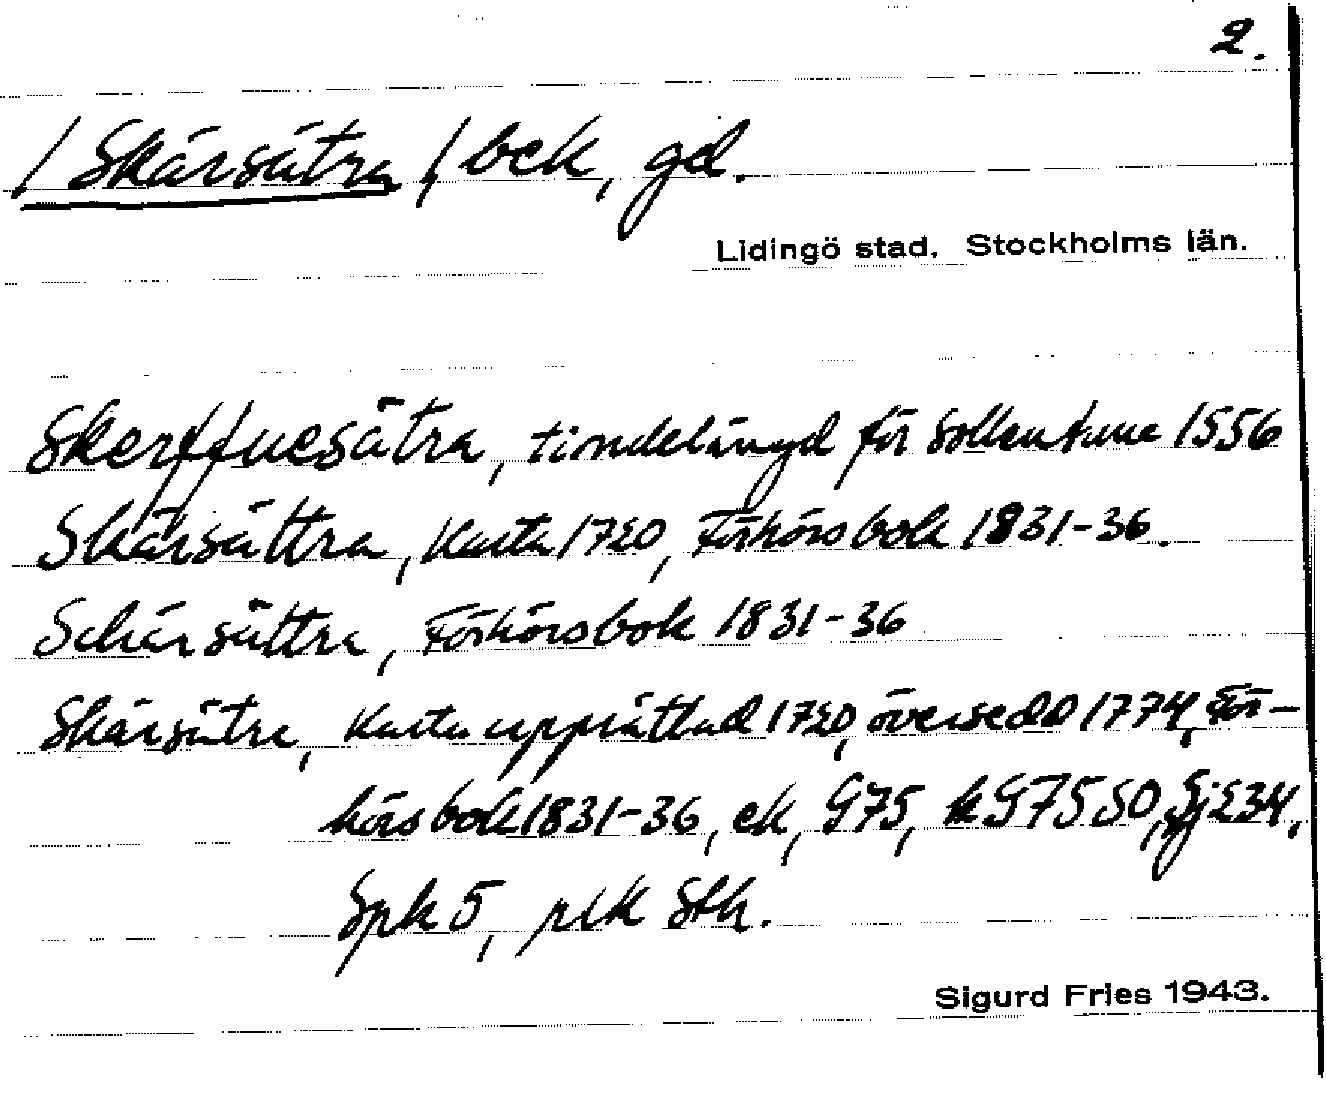 2.
/ Skärsätra / bek, gd.
Lidingö stad. Stockholms län.
Skerffuesätra, tiondelängd för Sollentuna 1556
Skärsättra, Karta 1720, Förhörsbok 1831-36.
Schärsättra, Förhörsbok 1831-36
Skärsätra, Karta upprättad 1720, översedd 1774, För-
hörsbok 1831-36, ek, G75, k G75 SO, Sj 234,
Spk 5, rik Sth.
Sigurd Fries 1943.